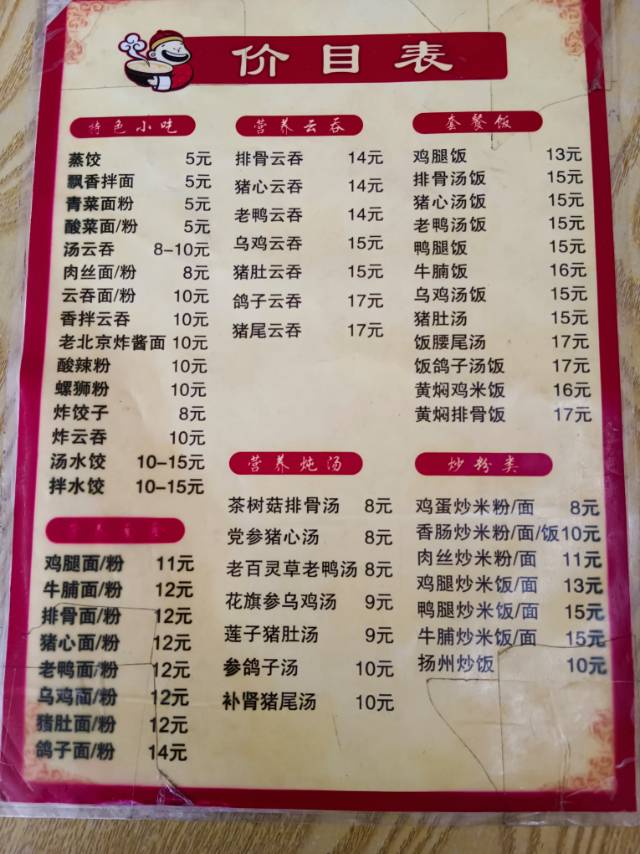 价目表
特色小吃
蒸饺 5元
飘香拌面 5元
青菜面粉 5元
酸菜面/粉 5元
汤云吞 8-10元
肉丝面/粉 8元
云吞面/粉 10元
香拌云吞 10元
老北京炸酱面 10元
酸辣粉 10元
螺狮粉 10元
炸饺子 8元
炸云吞 10元
汤水饺 10-15元
拌水饺 10-15元
鸡腿面/粉 11元
牛脯面/粉 12元
排骨面/粉 12元
猪心面/粉 12元
老鸭面/粉 12元
乌鸡面/粉 12元
猪肚面/粉 12元
鸽子面/粉 14元
营养云吞
排骨云吞 14元
猪心云吞 14元
老鸭云吞 14元
乌鸡云吞 15元
猪肚云吞 15元
鸽子云吞 17元
猪尾云吞 17元
营养炖汤
茶树菇排骨汤 8元
党参猪心汤 8元
老百灵草老鸭汤 8元
花旗参乌鸡汤 9元
莲子猪肚汤 9元
参鸽子汤 10元
补肾猪尾汤 10元
套餐饭
鸡腿饭 13元
排骨汤饭 15元
猪心汤饭 15元
老鸭汤饭 15元
鸭腿饭 15元
牛腩饭 16元
乌鸡汤饭 15元
猪肚汤 15元
饭腰尾汤 17元
饭鸽子汤饭 17元
黄焖鸡米饭 16元
黄焖排骨饭 17元
炒粉类
鸡蛋炒米粉/面 8元
香肠炒米粉/面/饭 10元
肉丝炒米粉/面 11元
鸡腿炒米饭/面 13元
鸭腿炒米饭/面 15元
牛脯炒米饭/面 15元
扬州炒饭 10元